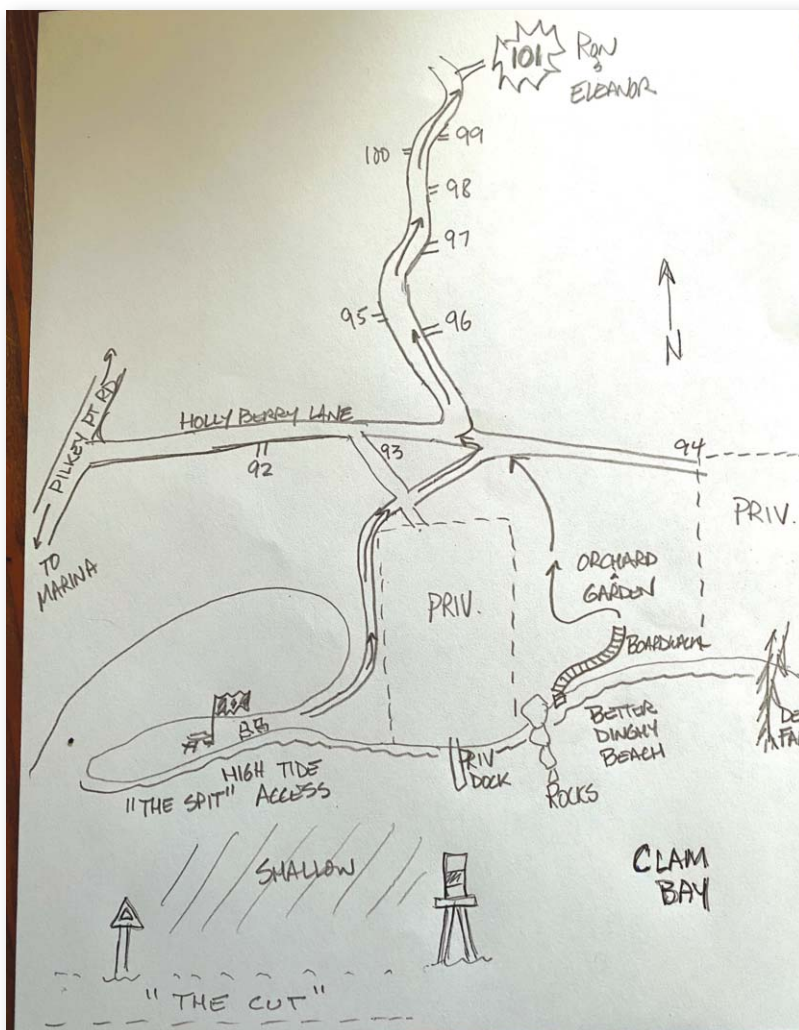 101
RON
&
ELEANOR
99
100
98
97
95
96
N
PILKEY PT RD
HOLLY BERRY LANE
92
93
94
TO
MARINA
PRIV.
PRIV.
ORCHARD
&
GARDEN
BOARDWALK
BETTER
DINGHY
BEACH
PRIV
DOCK
ROCKS
HIGH TIDE
ACCESS
"THE SPIT"
SHALLOW
CLAM
BAY
"THE CUT"